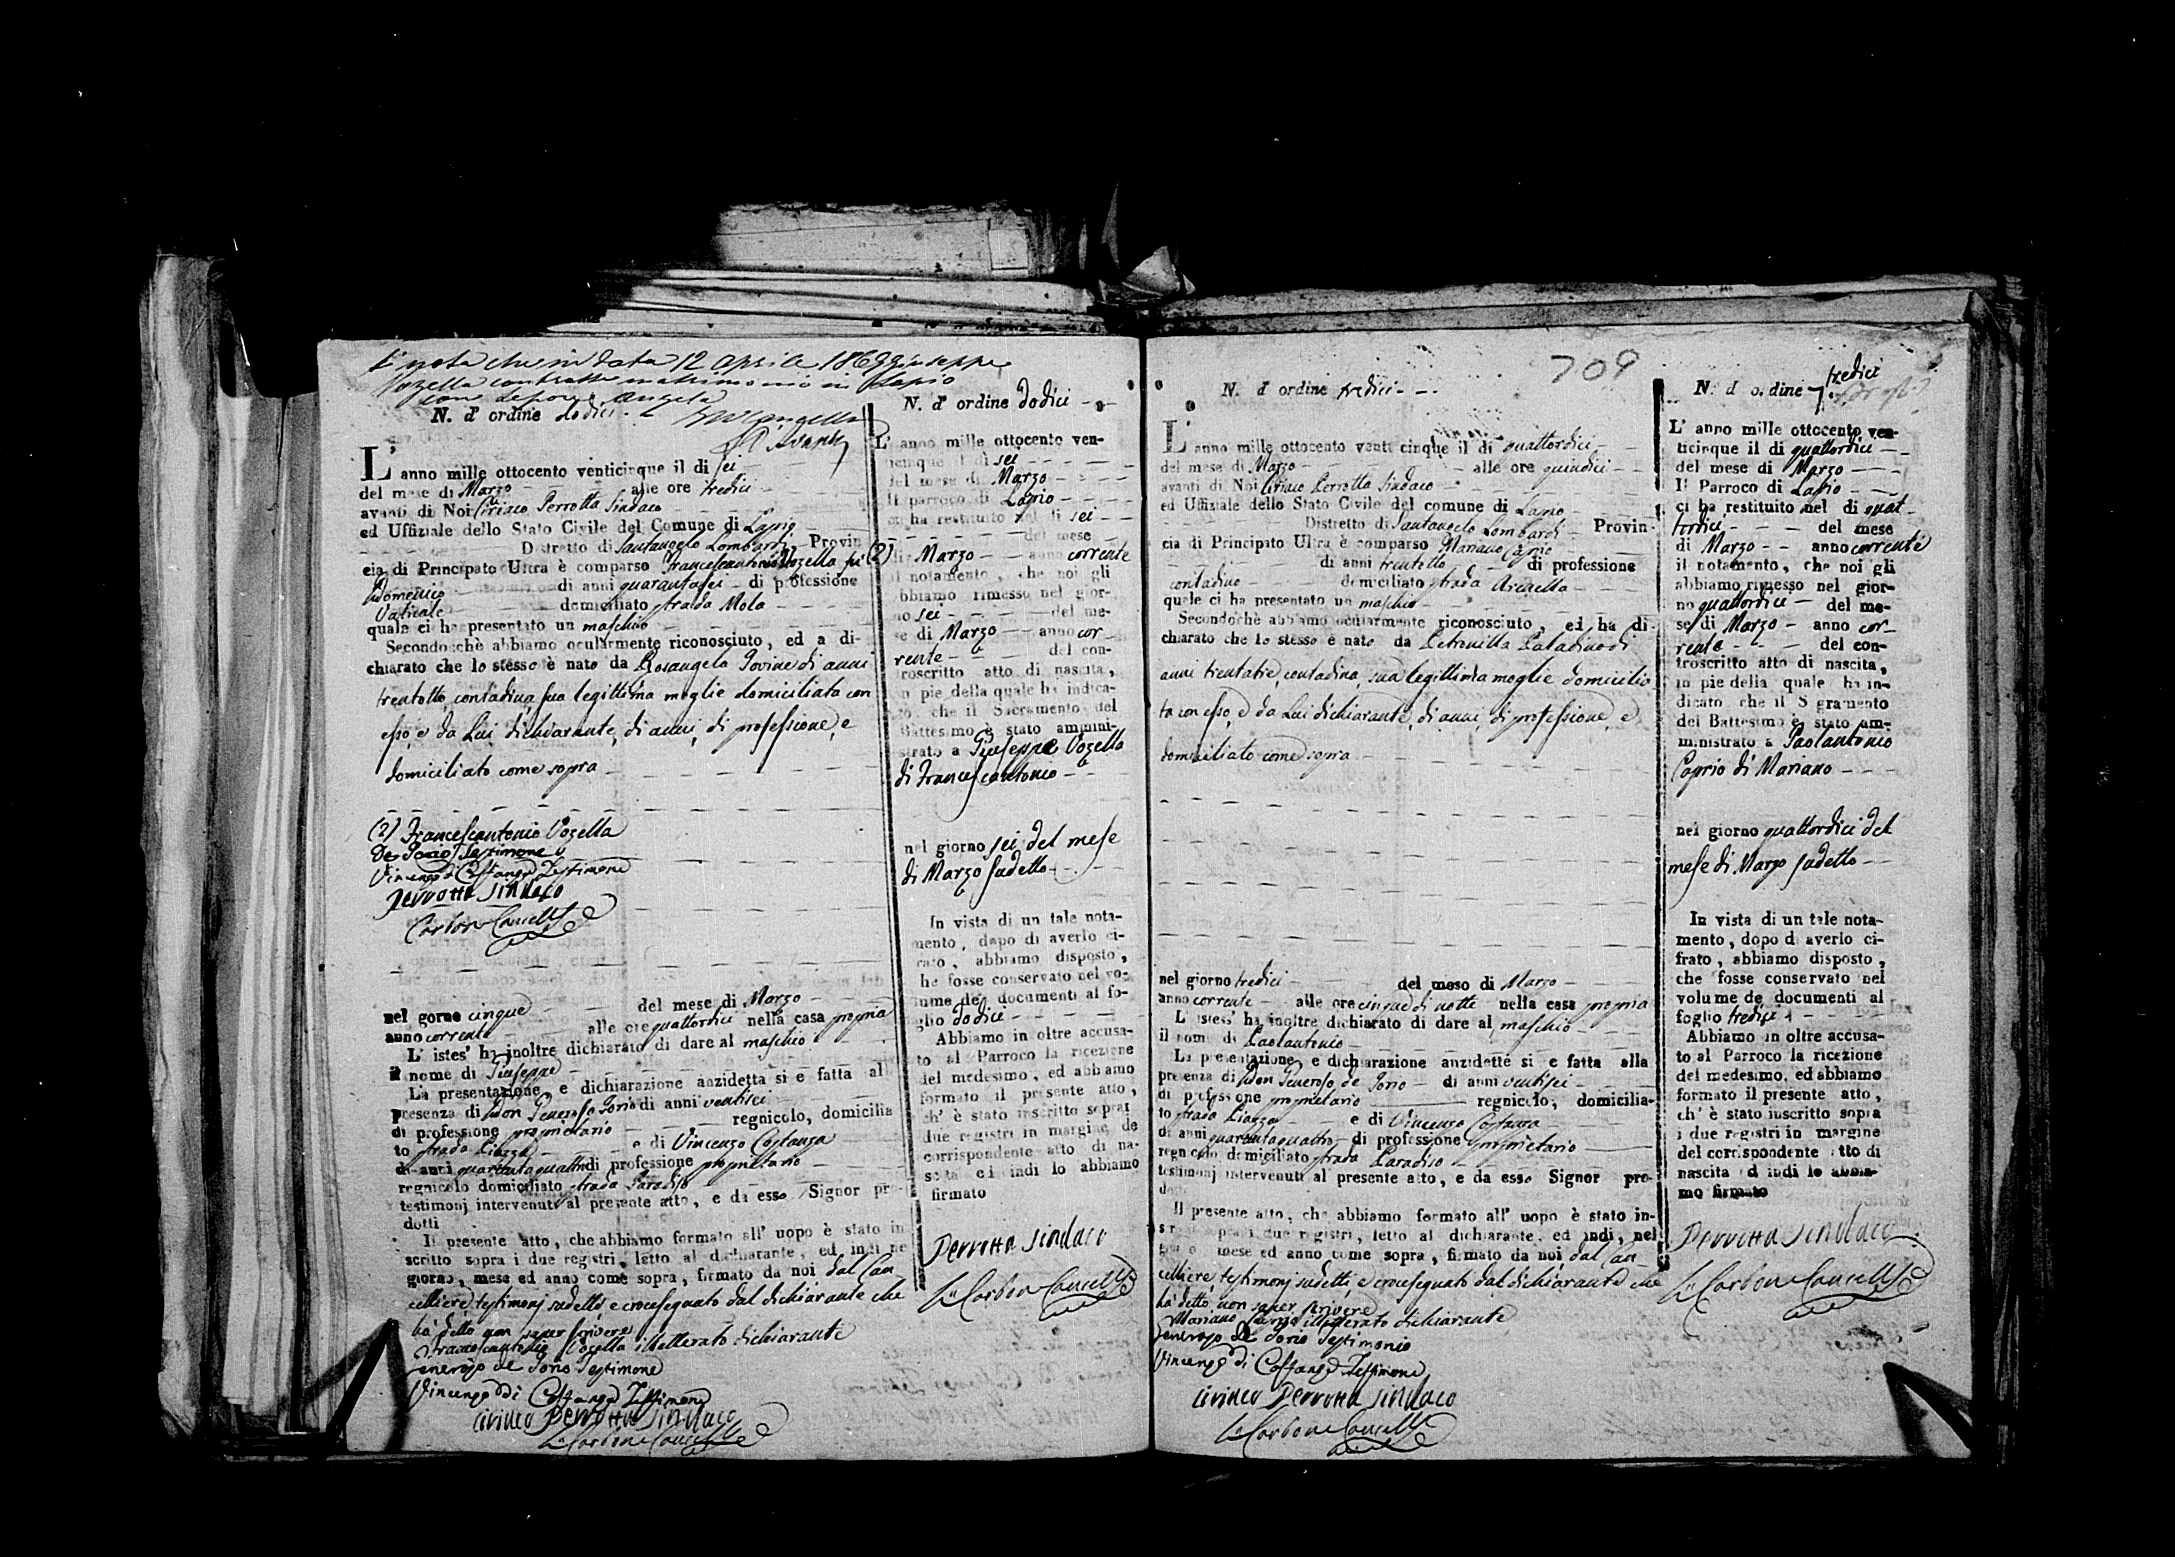 Si nota che in data 12 aprile 1869 Giuseppe
Vozella contrasse matrimonio in Lapio
con Angela
N. d' ordine dodici
L' anno mille ottocento venticinque il dì sei
del mese di Marzo alle ore tredici
avanti di Noi Ciriaco Perrotta Sindaco
ed Uffiziale dello Stato Civile del Comune di Lapio
Distretto di Santangelo Lombardi Provin
cia di Principato Ultra è comparso Francescantonio Vozella fu (2)
Domenico di anni quarantasei di professione
Vaticale domiciliato strada Mola
quale ci ha presentato un maschio
Secondocchè abbiamo ocularmente riconosciuto, ed a di-
chiarato che lo stesso è nato da Rosangela Iovine di anni
trentotto, contadina sua legittima moglie domiciliata con
esso, e da Lui dichiarante, di anni, di professione, e
domiciliato come sopra
(2) Francescantonio Vozella
De Iorio Testimone
Vincenzo di Costanza Testimone
Perrotta Sindaco
Carbone Cancell.
nel gorno cinque del mese di Marzo
anno corrente alle ore quattordici nella casa propria
L' istes' ha inoltre dichiarato di dare al maschio
il nome di Giuseppe
La presentazione, e dichiarazione anzidetta si è fatta al
presenza di Don Generoso Iorio di anni ventisei
di professione proprietario regnicolo, domicilia
to strada Piazza e di Vincenzo Costanza
di anni quarantaquattro di professione proprietario
regnicolo domiciliato strada Paradiso
testimonj intervenuti al presente atto, e da esso Signor pro
dotti
Il presente atto, che abbiamo formato all' uopo è stato in
scritto sopra i due registri, letto al dichiarante, ed indi ne
giorno, mese ed anno come sopra, firmato da noi dal Can
celliere, testimonj sudetti e crocesegnato dal dichiarante che
hà detto non saper scrivere
Francescantonio Vozella illetterato dichiarante
Generoso de Iorio Testimone
Vincenzo di Costanza Testimone
Ciriaco Perrotta Sindaco
Carbone Cancell.
N. d' ordine dodici
L' anno mille ottocento ven-
ticinque il dì sei
del mese di Marzo
Il parroco di Lapio
ci ha restituito nel dì sei
del mese
di Marzo anno corrente
il notamento, che noi gli
abbiamo rimesso nel gior-
no sei del me-
se di Marzo anno cor-
rente del con-
troscritto atto di nascita,
in pie della quale ha indica-
to, che il Sacramento del
Battesimo è stato ammini-
strato a Giuseppe Vozella
di Francescantonio
nel giorno sei del mese
di Marzo sudetto
In vista di un tale nota-
mento, dopo di averlo ci-
frato, abbiamo disposto,
che fosse conservato nel vo-
lume de' documenti al fo-
glio dodici
Abbiamo in oltre accusa-
to al Parroco la ricezione
del medesimo, ed abbiamo
formato il presente atto,
ch' è stato inscritto sopra i
due registri in margine de
corrispondente atto di na-
scita ed indi lo abbiamo
firmato
Perrotta Sindaco
Carbone Cancell.
709
N. d' ordine tredici
L' anno mille ottocento venti cinque il dì quattordici
del mese di Marzo alle ore quindici
avanti di Noi Ciriaco Perrotta Sindaco
ed Uffiziale dello Stato Civile del comune di Lapio
Distretto di Santangelo Lombardi Provin-
cia di Principato Ultra è comparso Mariano Caprio
di anni trentotto di professione
contadino domiciliato strada Arenella
quale ci ha presentato un maschio
Secondochè abbiamo ocularmente riconosciuto, ed ha di-
chiarato che lo stesso è nato da Petronilla Paladino di
anni trentatre, contadina, sua legittima moglie domicilia
ta con esso, e da Lui dichiarante, di anni, di professione, e
domiciliato come sopra
nel giorno tredici del mese di Marzo
anno corrente alle ore cinque di notte nella casa propria
L' istess' ha inoltre dichiarato di dare al maschio
il nome di Paolantonio
La presentazione e dichiarazione anzidette si e fatta alla
presenza di Don Generoso de Iorio di anni ventisei
di professione proprietario regnicolo, domicilia-
to strada Piazza e di Vincenzo Costanza
di anni quarantaquattro di professione proprietario
regnicolo domiciliato strada Paradiso
testimonj intervenuti al presente atto, e da esso Signor pro-
dotti
Il presente atto, che abbiamo formato all' uopo è stato in-
scritto sopra i due registri, letto al dichiarante, ed indi, nel
giorno mese ed anno come sopra, firmato da noi, dal Can-
celliere, testimonj sudetti, e crocesegnato dal dichiarante che
hà detto non saper scrivere
Mariano Caprio illetterato dichiarante
Generoso de Iorio Testimonio
Vincenzo di Costanza Testimone
Ciriaco Perrotta Sindaco
Carbone Cancell.
tredici
N. d' ordine
L' anno mille ottocento ven-
ticinque il di quattordici
del mese di Marzo
Il Parroco di Lapio
ci ha restituito nel di quat-
tordici del mese
di Marzo anno corrente
il notamento, che noi gli
abbiamo rimesso nel gior-
no quattordici del me-
se di Marzo anno cor-
rente del con-
troscritto atto di nascita,
in pie della quale ha in-
dicato che il Sagramento
del Battesimo è stato am-
ministrato a Paolantonio
Caprio di Mariano
nel giorno quattordici del
mese di Marzo sudetto
In vista di un tale nota-
mento, dopo d averlo ci-
frato, abbiamo disposto,
che fosse conservato nel
volume de documenti al
foglio tredici
Abbiamo in oltre accusa-
to al Parroco la ricezione
del medesimo, ed abbiamo
formato il presente atto,
ch' è stato inscritto sopra
i due registri in margine
del corrispondente atto di
nascita ed indi lo abbia-
mo firmato
Perrotta Sindaco
Carbone Cancell.